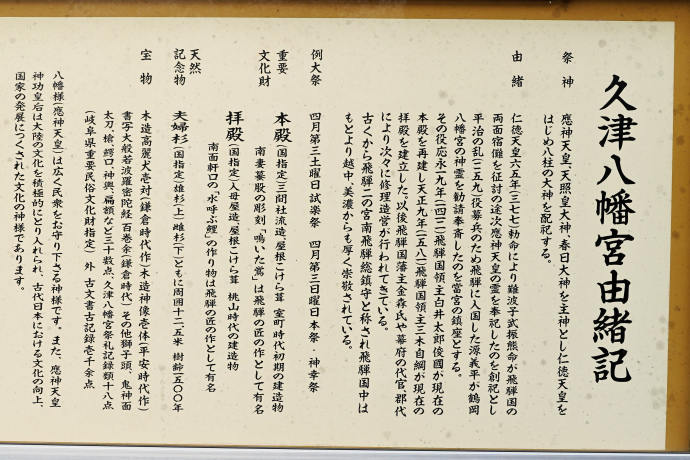 久津八幡宮由緒記
祭神
應神天皇、天照皇大神、春日大神を主神とし仁徳天皇を
はじめ八柱の大神を配祀する。
由緒
仁徳天皇六五年(三七七)勅命により難波子武振熊命が飛騨国の
両面宿儺を征討の途次應神天皇の霊を奉祀したのを創祀とし
平治の乱(一一五九)役募兵のため飛騨に入国した源義平が鶴岡
八幡宮の神霊を勧請奉斎したのを當宮の鎮座とする。
その後応永一九年(一四一二)飛騨国領主白井太郎俊國が現在の
本殿を再建し天正九年(一五八一)飛騨国領主三木自綱が現在の
拝殿を建立した。以後飛騨国藩主金森氏や幕府の代官、郡代
により次々に修理造営が行われてきている。
古くから飛騨二の宮南飛騨総鎮守と称され飛騨国中は
もとより越中、美濃からも厚く崇敬されている。
例大祭
四月第三土曜日試楽祭 四月第三日曜日本祭・神幸祭
重要
文化財
本殿(国指定)三間社流造、屋根こけら葺 室町時代初期の建造物
南妻蟇股の彫刻「鳴いた鶯」は飛騨の匠の作として有名
拝殿(国指定)入母屋造屋根こけら葺 桃山時代の建造物
南面軒口の「水呼ぶ鯉」の作り物は飛騨の匠の作として有名
天然
記念物
夫婦杉(国指定)雄杉(上)雌杉(下)ともに周囲十二・五米 樹齢一五〇〇年
宝物
木造高麗犬壱対(鎌倉時代作)木造神像壱体(平安時代作)
書写大般若波羅密陀経百巻余(鎌倉時代)その他獅子頭、鬼神面
太刀、槍、鰐口、神輿、扁額など三十数点、久津八幡宮祭礼記録類十八点
(岐阜県重要民俗文化財指定) 外 古文書古記録壱千余点
八幡様(應神天皇)は広く民衆をお守り下さる神様です。また、應神天皇
神功皇后は大陸の文化を積極的にとり入れられ、古代日本における文化の向上、
国家の発展につくされた文化の神様であります。